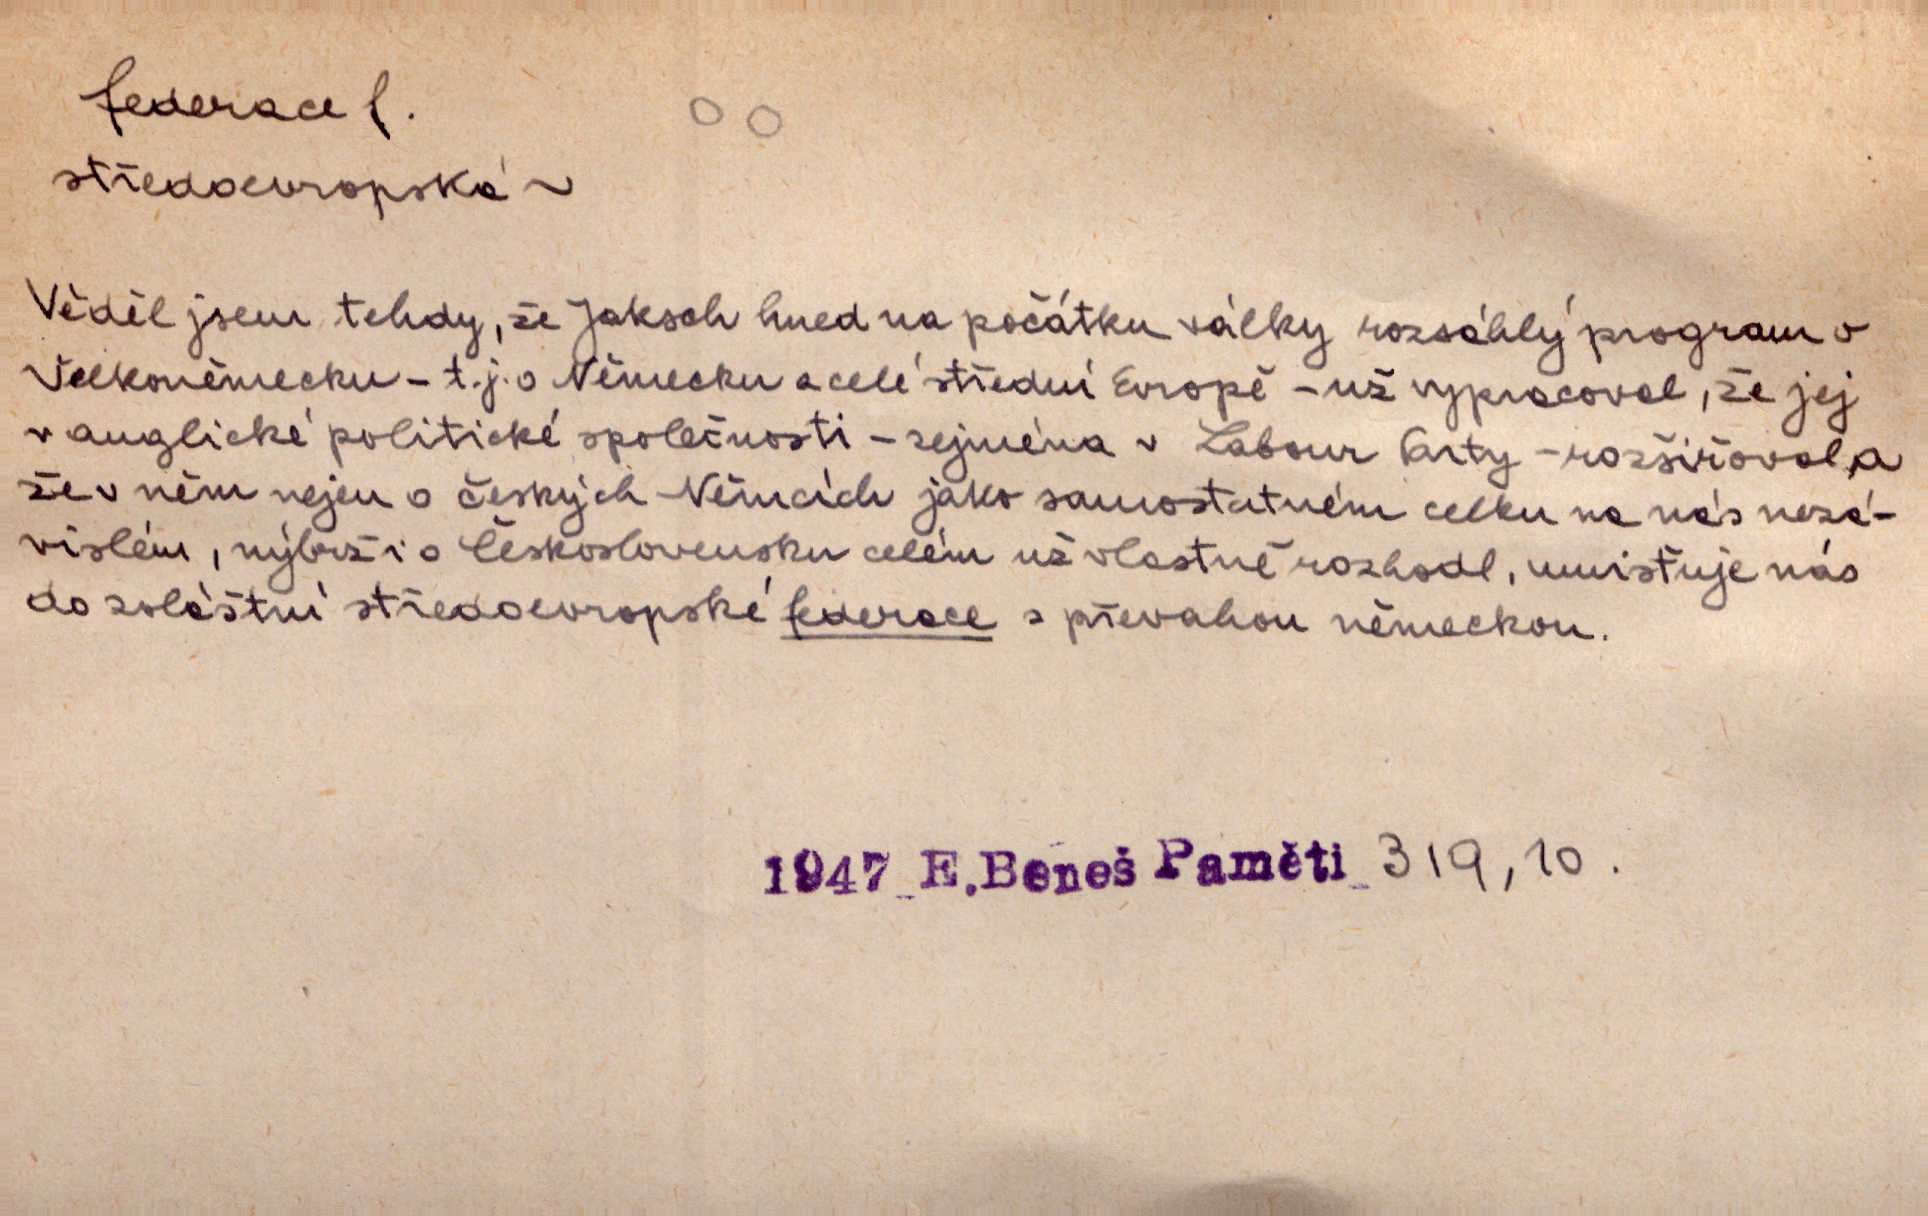 federace f.
středoevropská ~
Věděl jsem tehdy, že Jaksch hned na počátku války rozsáhlý program o
Velkoněmecku - t.j. o Německu a celé střední Evropě - už vypracoval, že jej
v anglické politické společnosti - zejména v Labour Party - rozšiřoval, a
že v něm nejen o českých Němcích jako samostatném celku na nás nezá-
vislém, nýbrž i o Československu celém už vlastně rozhodl, umisťuje nás
do zvláštní středoevropské federace s převahou německou.
1947_E.Beneš Paměti_319,10.